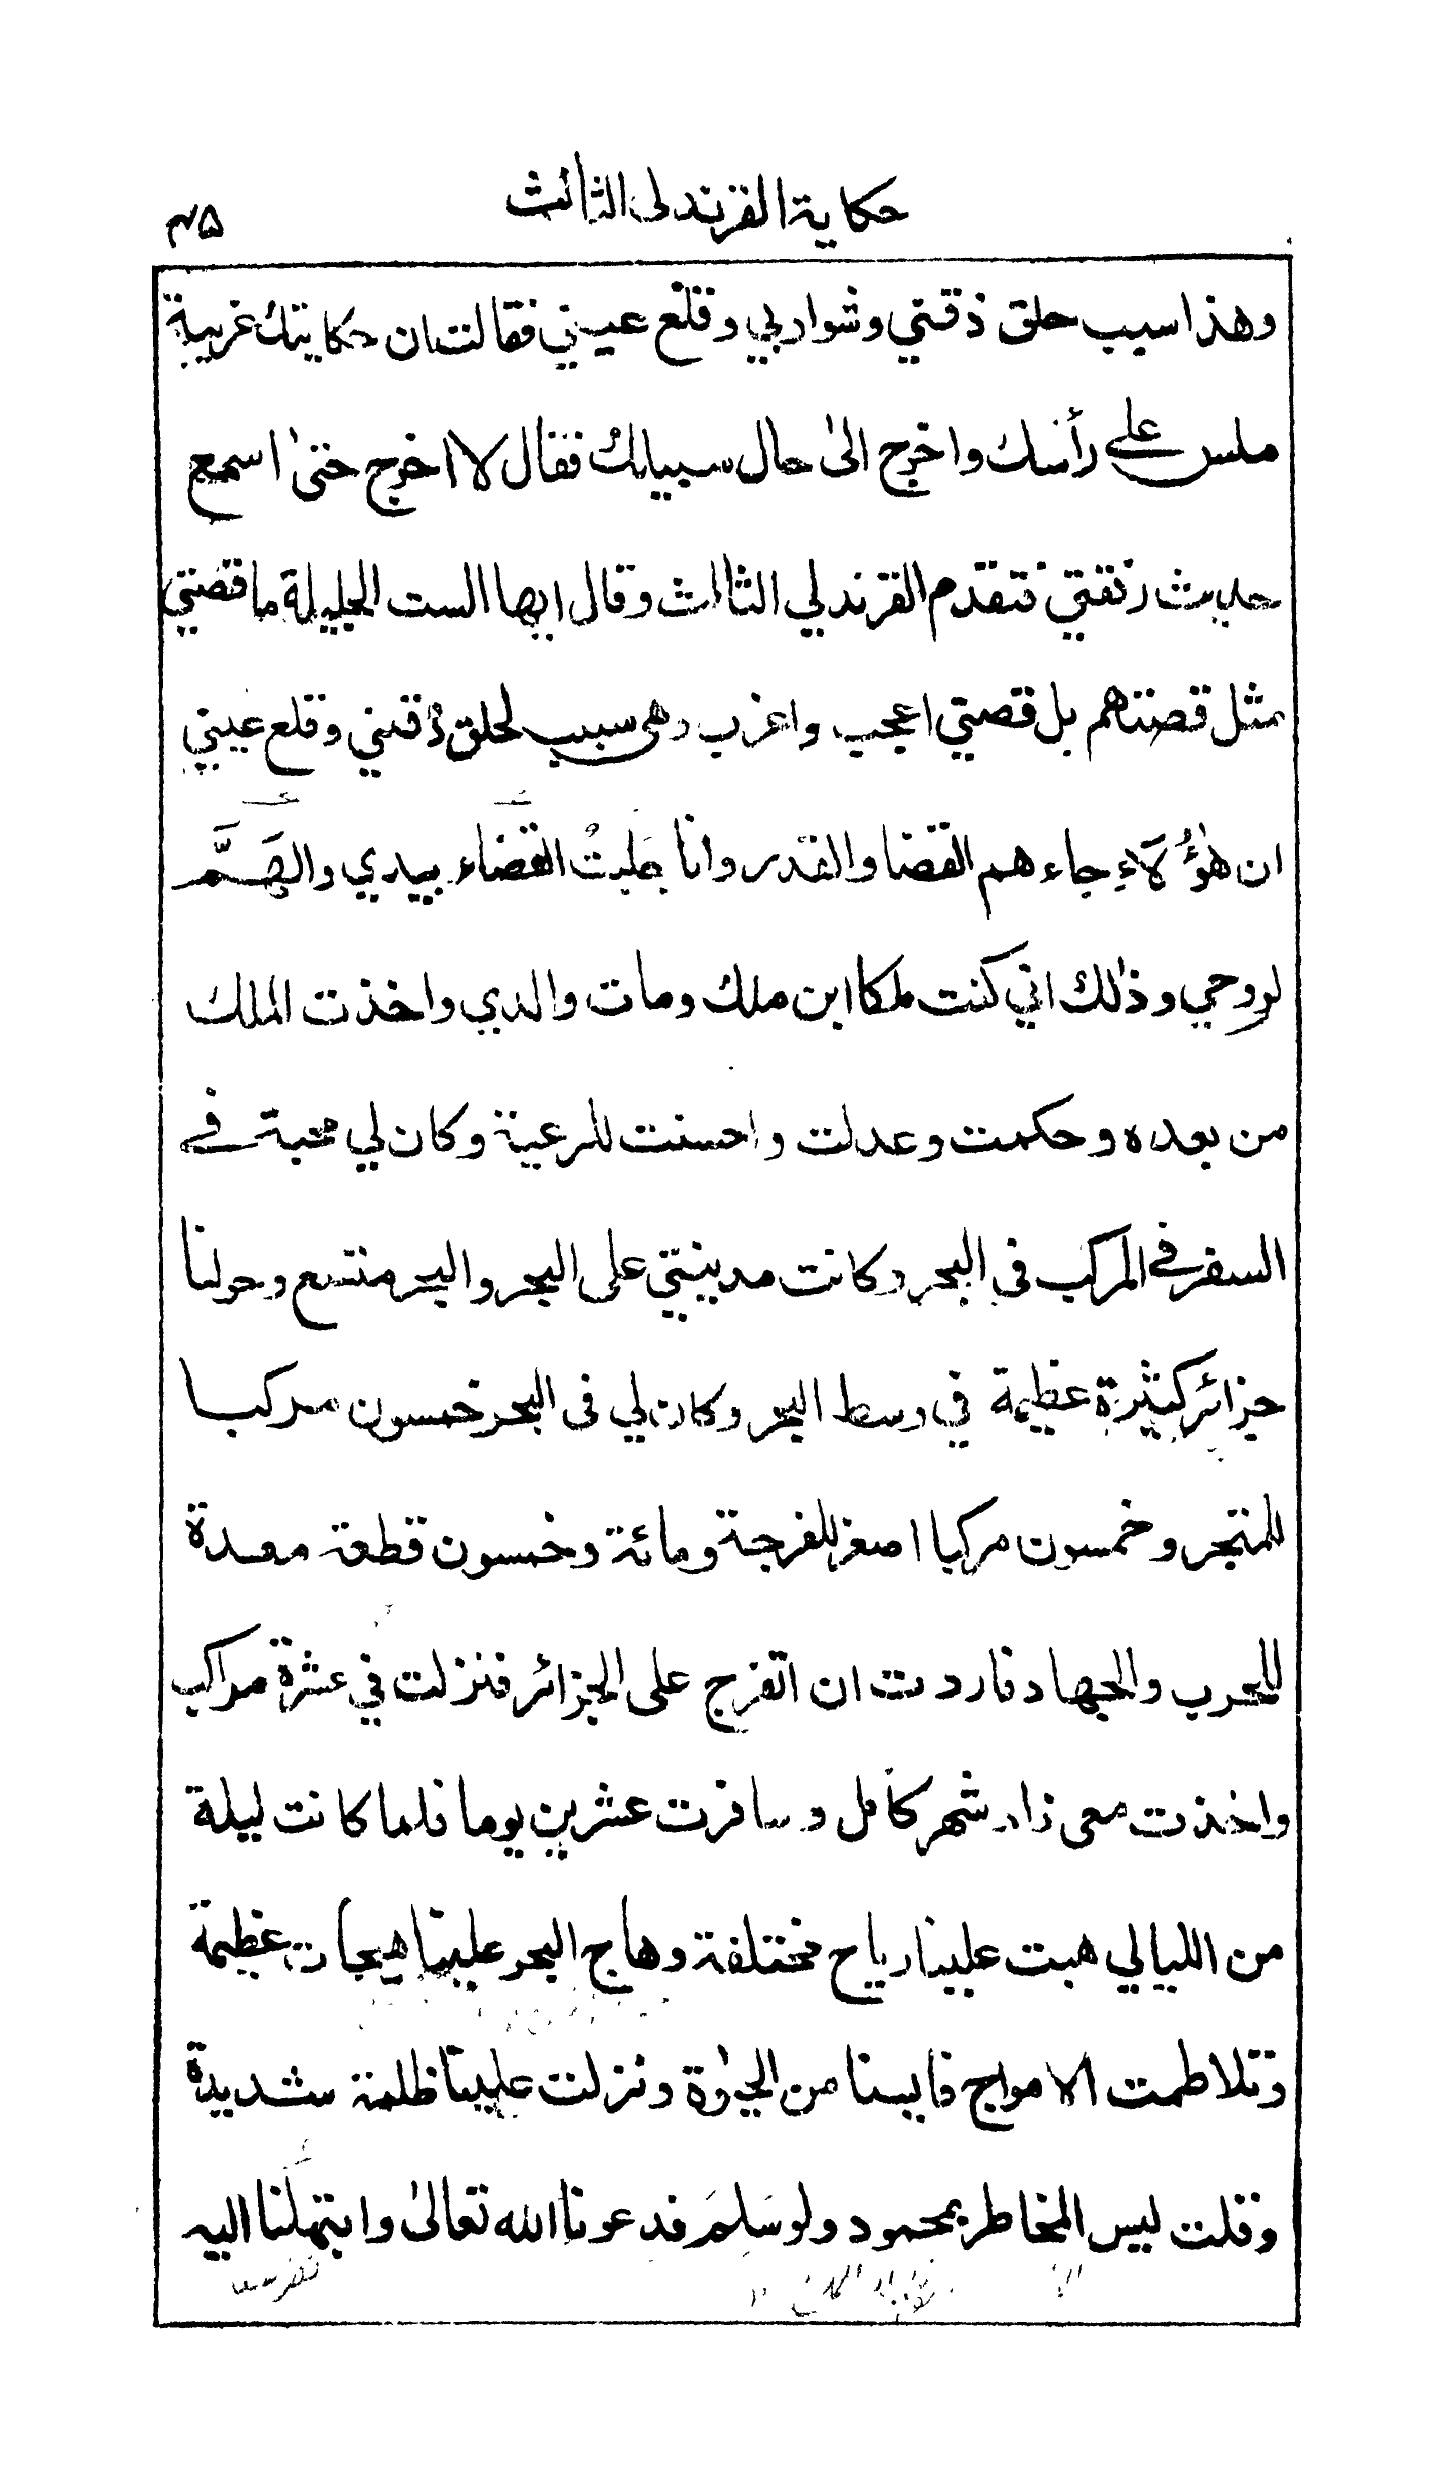 حكاية القرندلى الثالث
وهذا سبب حلق ذقني وشواربي وقلع عيني فقالت ان حكايتك غريبة
ملس على رأسك واخرج الى حال سبيلك فقال لا اخرج حتى اسمع
حديث رفقتي فتقدم القرندلي الثالث وقال ايها الست الجليلة ما قصتي
مثل قصتهم بل قصتي اعجب واغرب وهى سبب لحلق ذقني وقلع عيني
ان هؤلاء جاء هم القضا والقدر وانا جلبت القضاء بيدي والهَمَّ
لروحي وذلك اني كنت ملكا ابن ملك ومات والدي واخذت الملك
من بعده وحكمت وعدلت واحسنت للرعية وكان لي محبة في
السفر في المركب في البحر وكانت مدينتي على البحر والبحر متسع وحولنا
جزائر كثيرة عظيمة في وسط البحر وكان لي فى البحر خمسون مركبا
للمتجر وخمسون مركبا اصغر للفرجة ومائة وخمسون قطعة معدة
للحرب والجهاد فاردت ان اتفرج على الجزائر فنزلت في عشرة مراكب
واخذت معى زاد شهر كامل وسافرت عشرين يوما فلما كانت ليلة
من الليالي هبت علينا رياح مختلفة وهاج البحر علينا هيجات عظيمة
وتلاطمت الامواج فايسنا من الحيوة ونزلت علينا ظلمة شديدة
وقلت ليس المخاطر بمحمود ولو سَلِمَ فدعونا الله تعالى وابتهلنا اليه